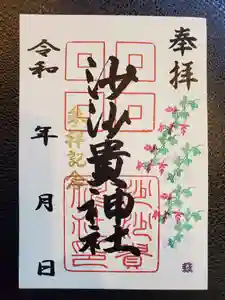 奉拝
沙沙貴神社
参拝記念
令和 年 月 日